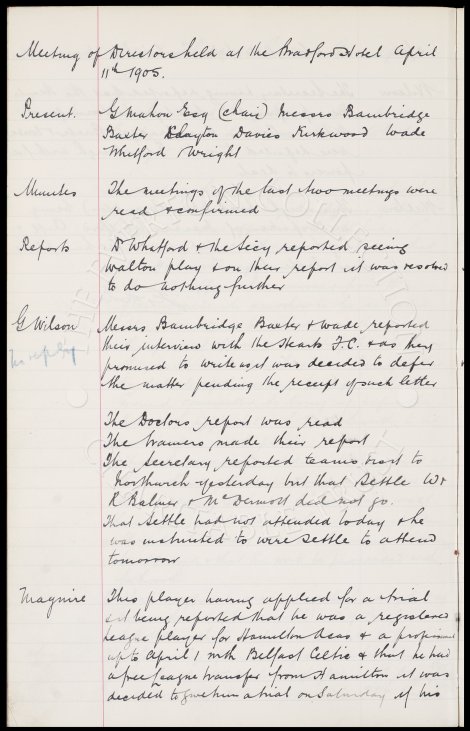 Meeting of Directors held at the Bradford Hotel April
11th 1905.
Present. G Mahon Esq (chair) Messrs Bainbridge
Baxter Clayton Davies Kirkwood Wade
Whitford Wright
Minutes The meetings of the last two meetings were
read & confirmed
Reports Dr Whitford & the Secy reported seeing
Walton play & on their report it was resolved
to do nothing further
G Wilson Messrs Bainbridge Baxter & Wade, reported
no reply their interview with the Hearts F.C. & as they
promised to write us it was decided to defer
the matter pending the receipt of such letter
The Doctors report was read
The trainers made their report
The Secretary reported teams visit to
Northwich yesterday but that Settle W &
R Balmer & McDermott did not go.
That Settle had not attended today & he
was instructed to wire Settle to attend
tomorrow
Maguire This player having applied for a trial
it being reported that he was a registered
league player for Hamilton Acas & a professional
up to April 1 with Belfast Celtic & that he had
a free league transfer from Hamilton it was
decided to give him a trial on Saturday if his